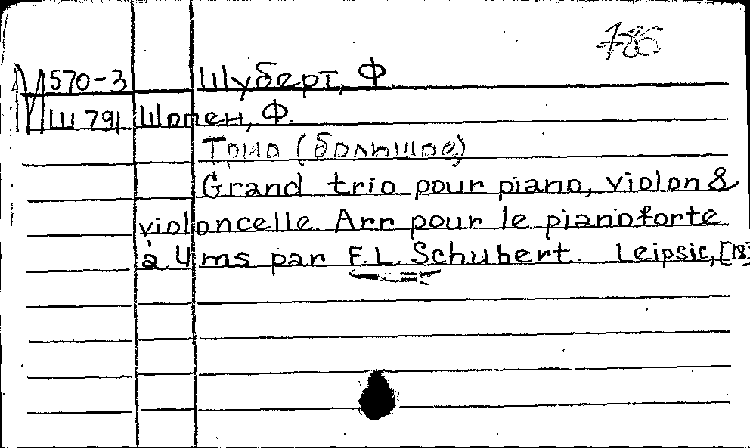 785
М 570-3 Шуберт, Ф
Ш 791 Шопен, Ф.
Трио (большое)
Grand trio pour piano, violon &
violoncelle. Arr pour le pianoforte
à 4 ms par F.L. Schubert. Leipsic, [18]